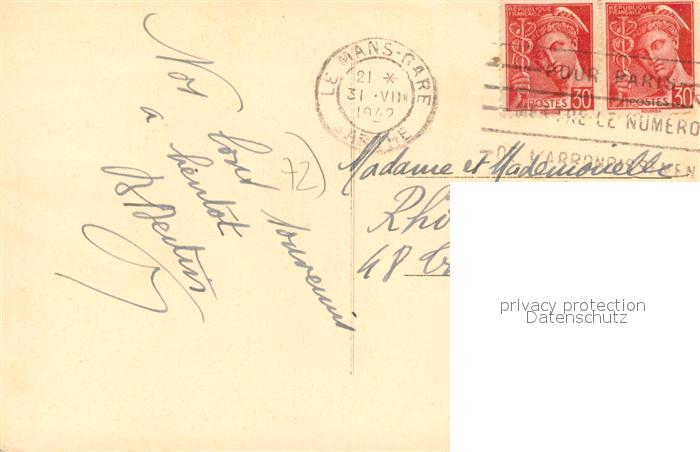 Nos bons souvenirs
à bientôt
72
LE MANS-GARE
21 *
31 -VIII
1942
SARTHE
RÉPUBLIQUE FRANÇAISE
POSTES 30
RÉPUBLIQUE FRANÇAISE
POSTES 30
POUR PARIS
METTRE LE NUMERO
DE L'ARRONDISSEMEN
Madame et Mademoiselle
48
privacy protection
Datenschutz